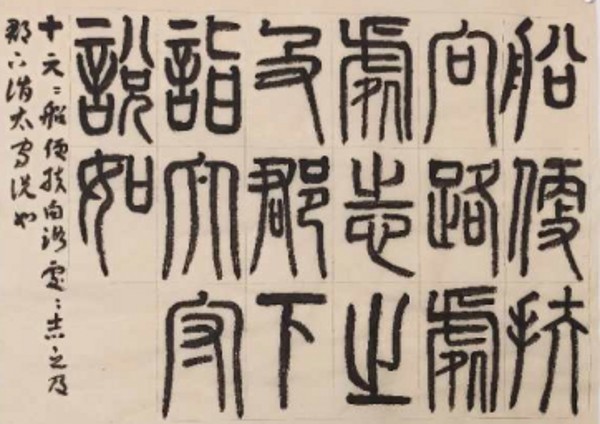 船便扶
向路處
處志之
及郡下
詣太守
說如
十 船便扶向路處〻志之及
郡下詣太守説如